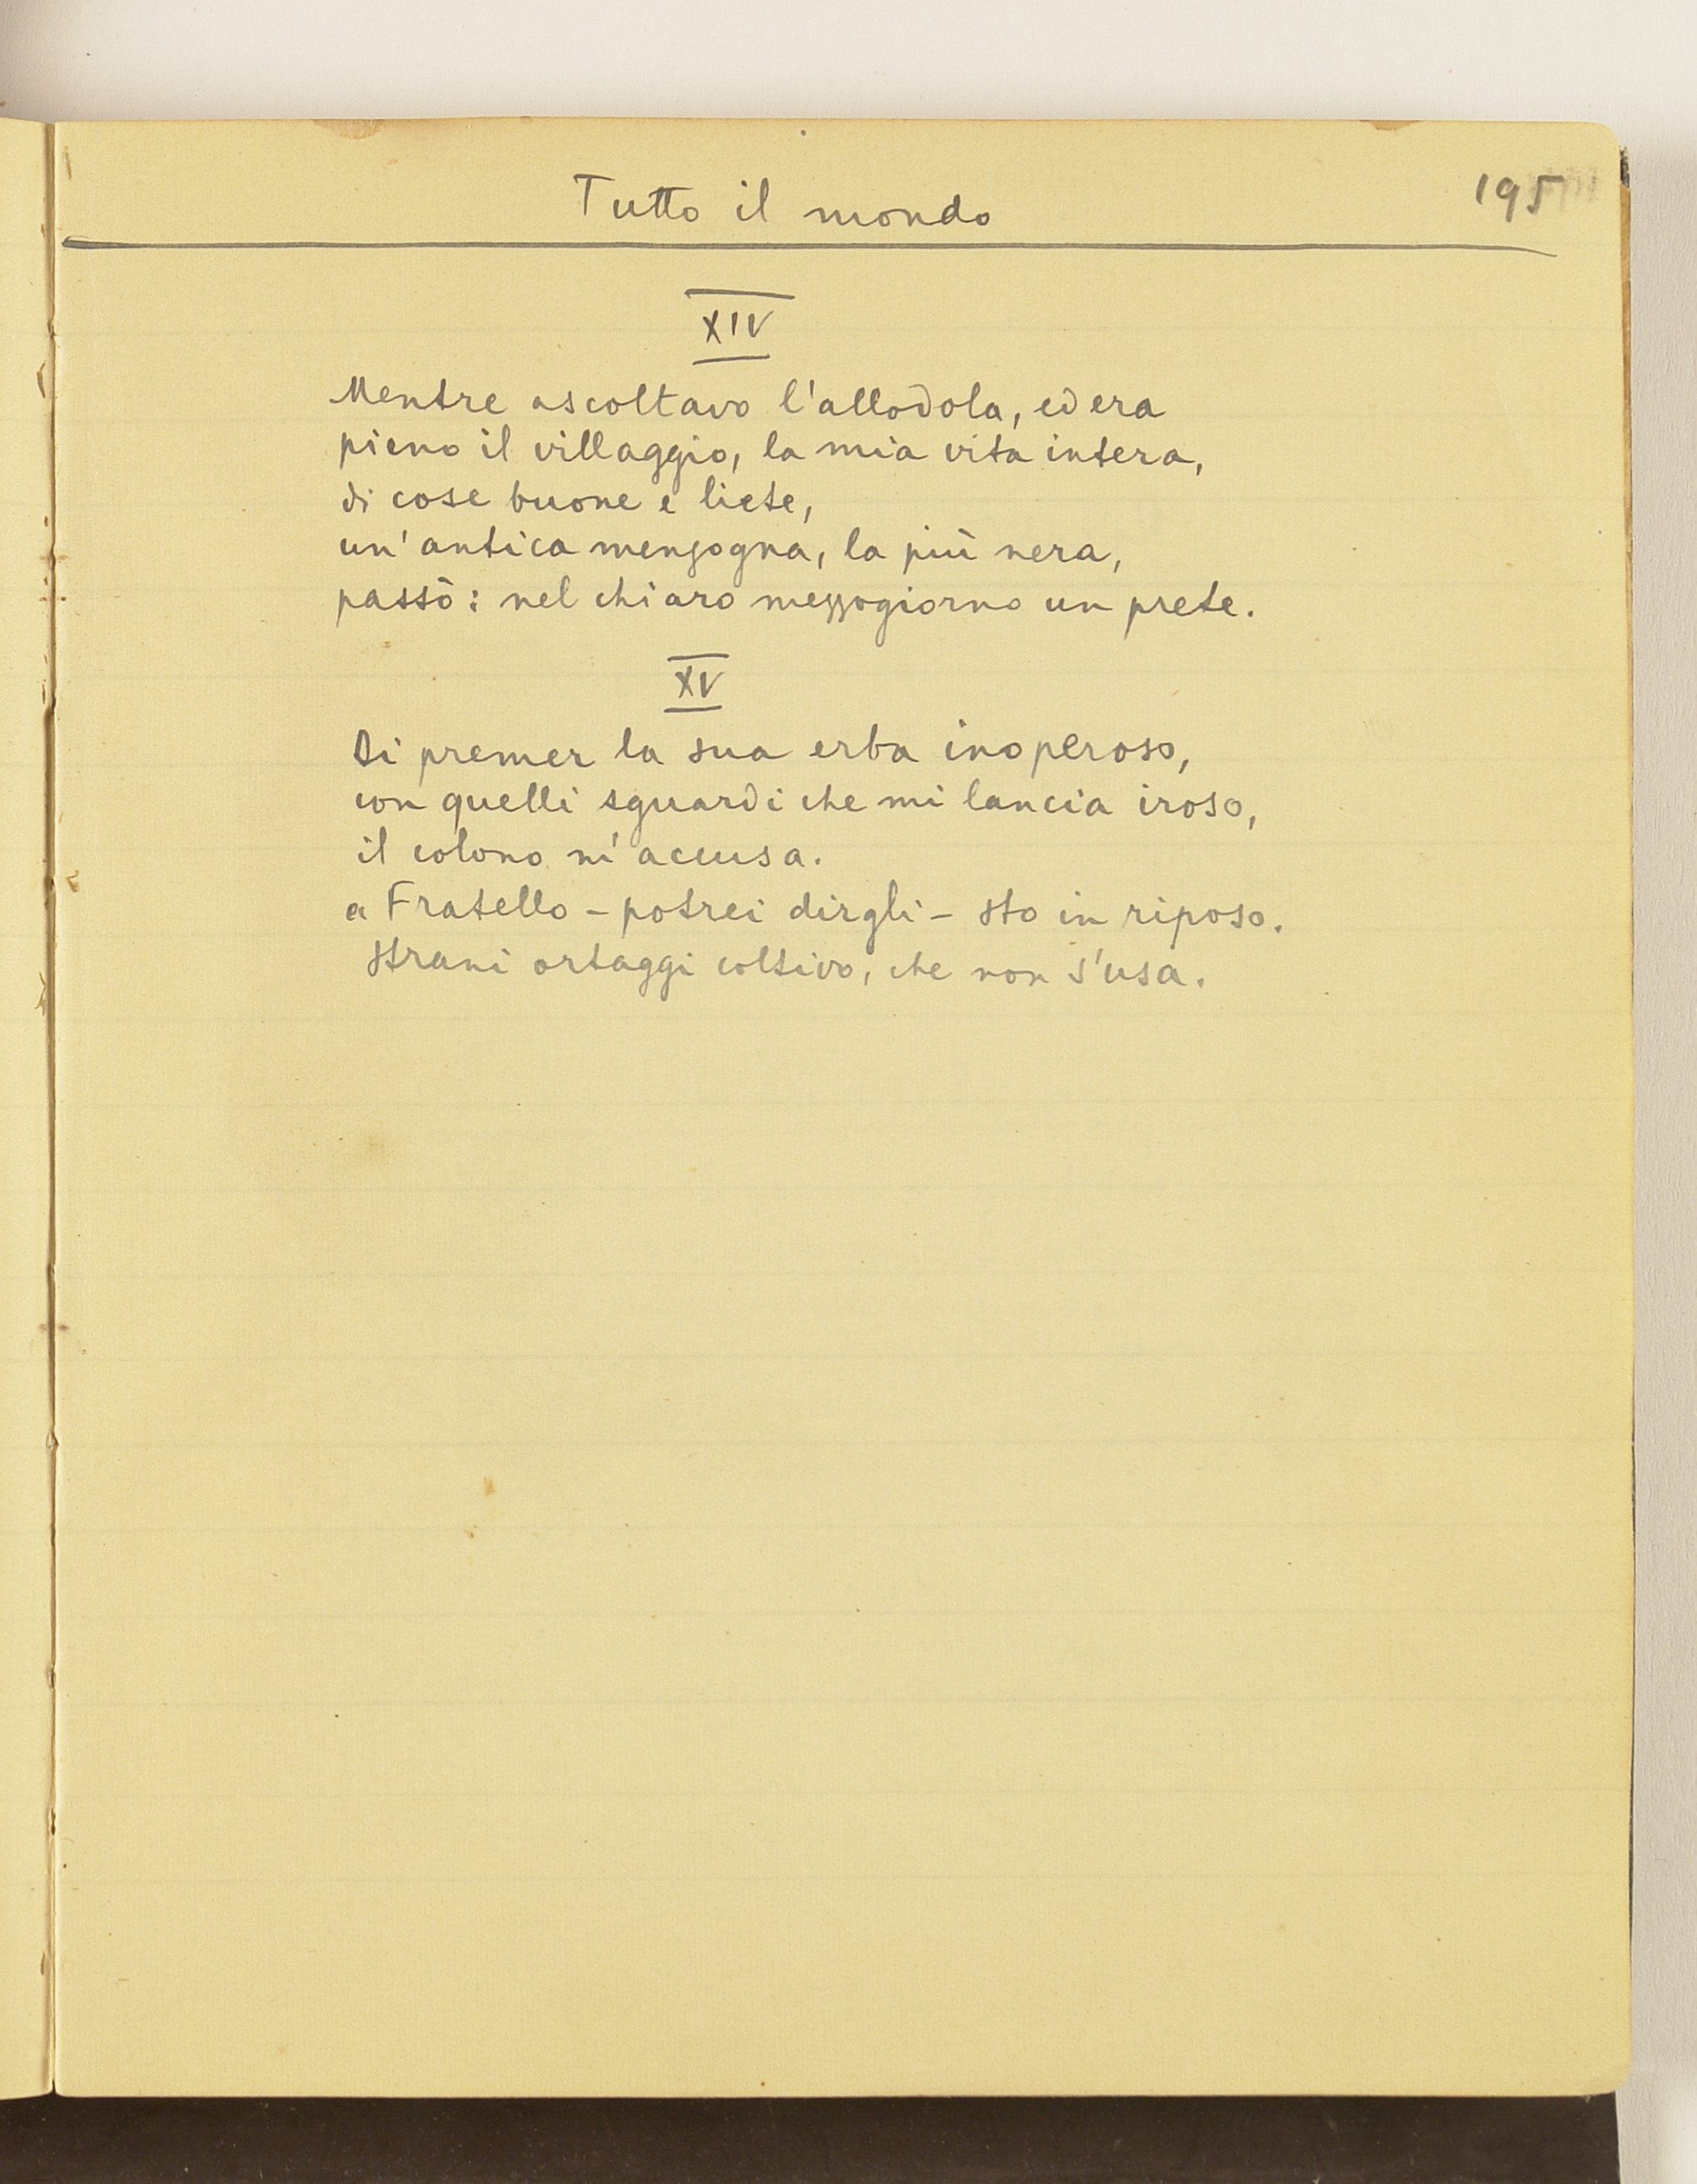 Tutto il mondo
195
XIV
Mentre ascoltavo l'allodola, ed era
pieno il villaggio, la mia vita intera,
di cose buone e liete,
un'antica menzogna, la più nera,
passò: nel chiaro mezzogiorno un prete.
XV
Di premer la sua erba inoperoso,
con quelli sguardi che mi lancia iroso,
il colono m'accusa.
a Fratello - potrei dirgli - sto in riposo.
Strani ortaggi coltivo, che non s'usa.